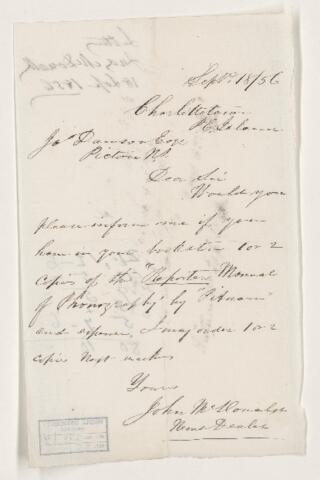 Sept. 18/56
Charlottetown
P.E. Island
Jas Dawson Esqr
Pictou N.S.
Dear Sir
Would you
please inform me if you
have in your bookstore 1 or 2
copies of the "Reporters Manual
of Phonography" by "Pitman"
and expense, I may order 1 or 2
copies next week
Yours
John McDonald
News Dealer